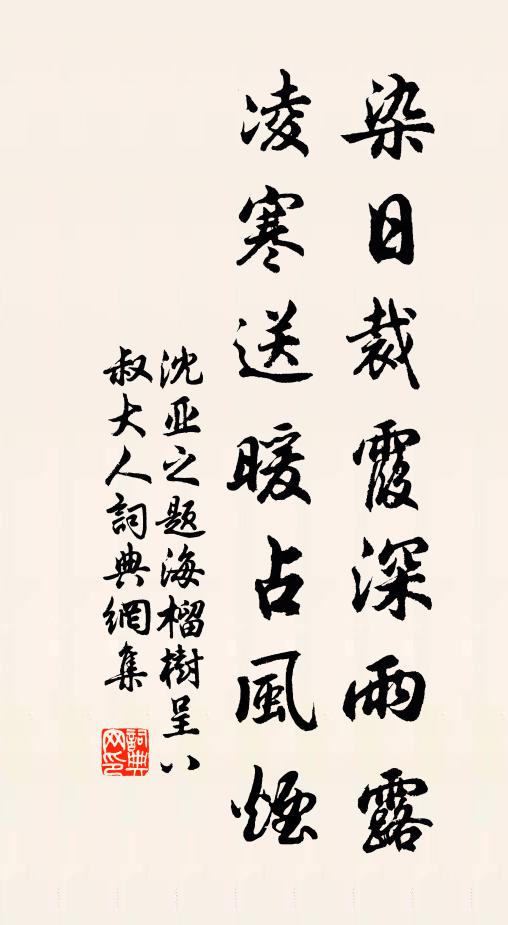 染日裁霞深雨露
凌寒送暖占風煙
沈亚之题海榴樹呈八
叔大人詞典網集
詞典网印